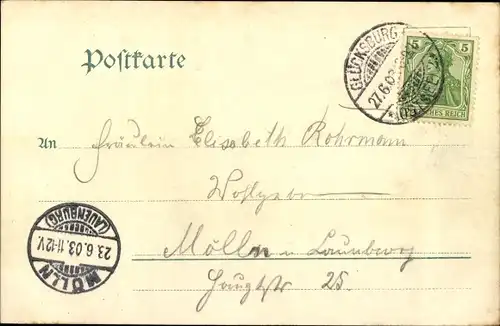 Postkarte
GLÜCKSBURG
27.6.03
(OSTSEE)
5 5
REICH
An Fräulein Elisabeth Rohrmann
Wohlgeboren
Mölln i. Lauenburg
Hauptstr 25.
MÖLLN
23.6.03.11-12V.
(LAUENBURG)